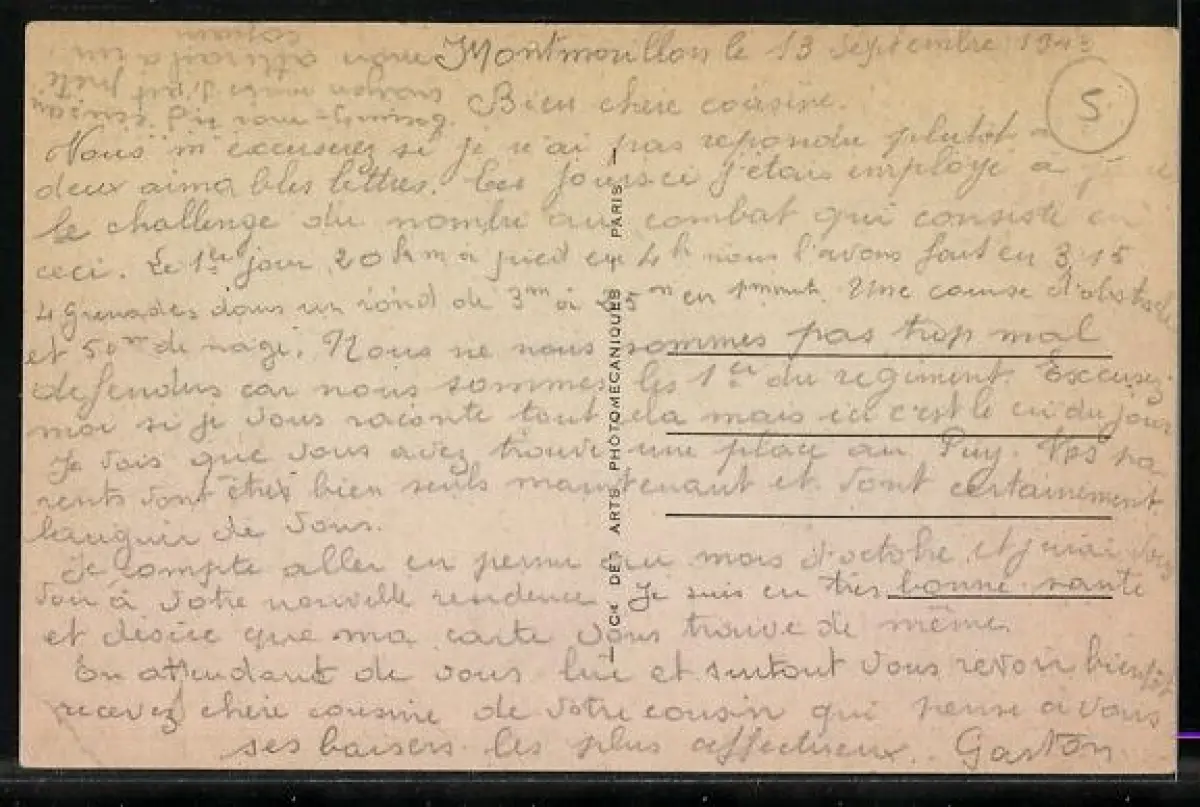 Montmorillon le 13 Septembre 1943
Bien chère cousine.
Vous m'excuserez si je n'ai pas repondu plutôt à
deux aimables lettres. Ces jours-ci j'étais employé à
le challenge du nombre au combat qui consiste en
ceci. Le 1er jour 20 km à pied en 4h nous l'avons fait en 3,15
4 grenades dans un rond de 3m à 25m en 1 minute. Une course d'obstacle
et 50m de nage. Nous ne nous sommes pas trop mal
defendus car nous sommes les 1er du regiment. Excusez-
moi si je vous raconte tout cela mais ici c'est le cri du jour
Je vois que vous avez trouvé une place au Puy. Vos pa
rents vont être bien seuls maintenant et vont certainement
languir de vous.
Je compte aller en perme au mois d'octobre et j'irai vous
voir à votre nouvelle residence. Je suis en très bonne santé
et désire que ma carte vous trouve de même.
En attendant de vous lire et surtout vous revoir bientôt
recevez chère cousine de votre cousin qui pense à vous
ses baisers les plus affectueux. Gaston
5
DES ARTS PHOTOMECANIQUES
PARIS